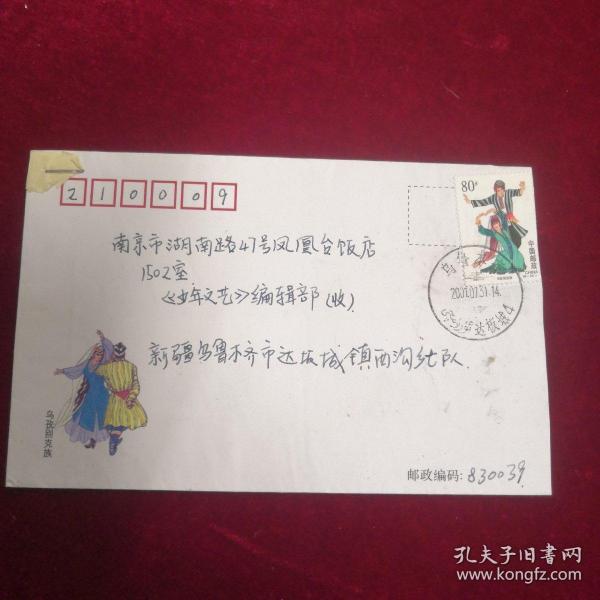 210009
80分
中国邮政
CHINA
南京市湖南路47号凤凰台饭店
1502室
《少年文艺》编辑部(收)
2001.07.31.14
达坂城4
新疆乌鲁木齐市达坂城镇西沟
乌孜别克族
邮政编码:830039
孔夫子旧书网
www.kongfz.com